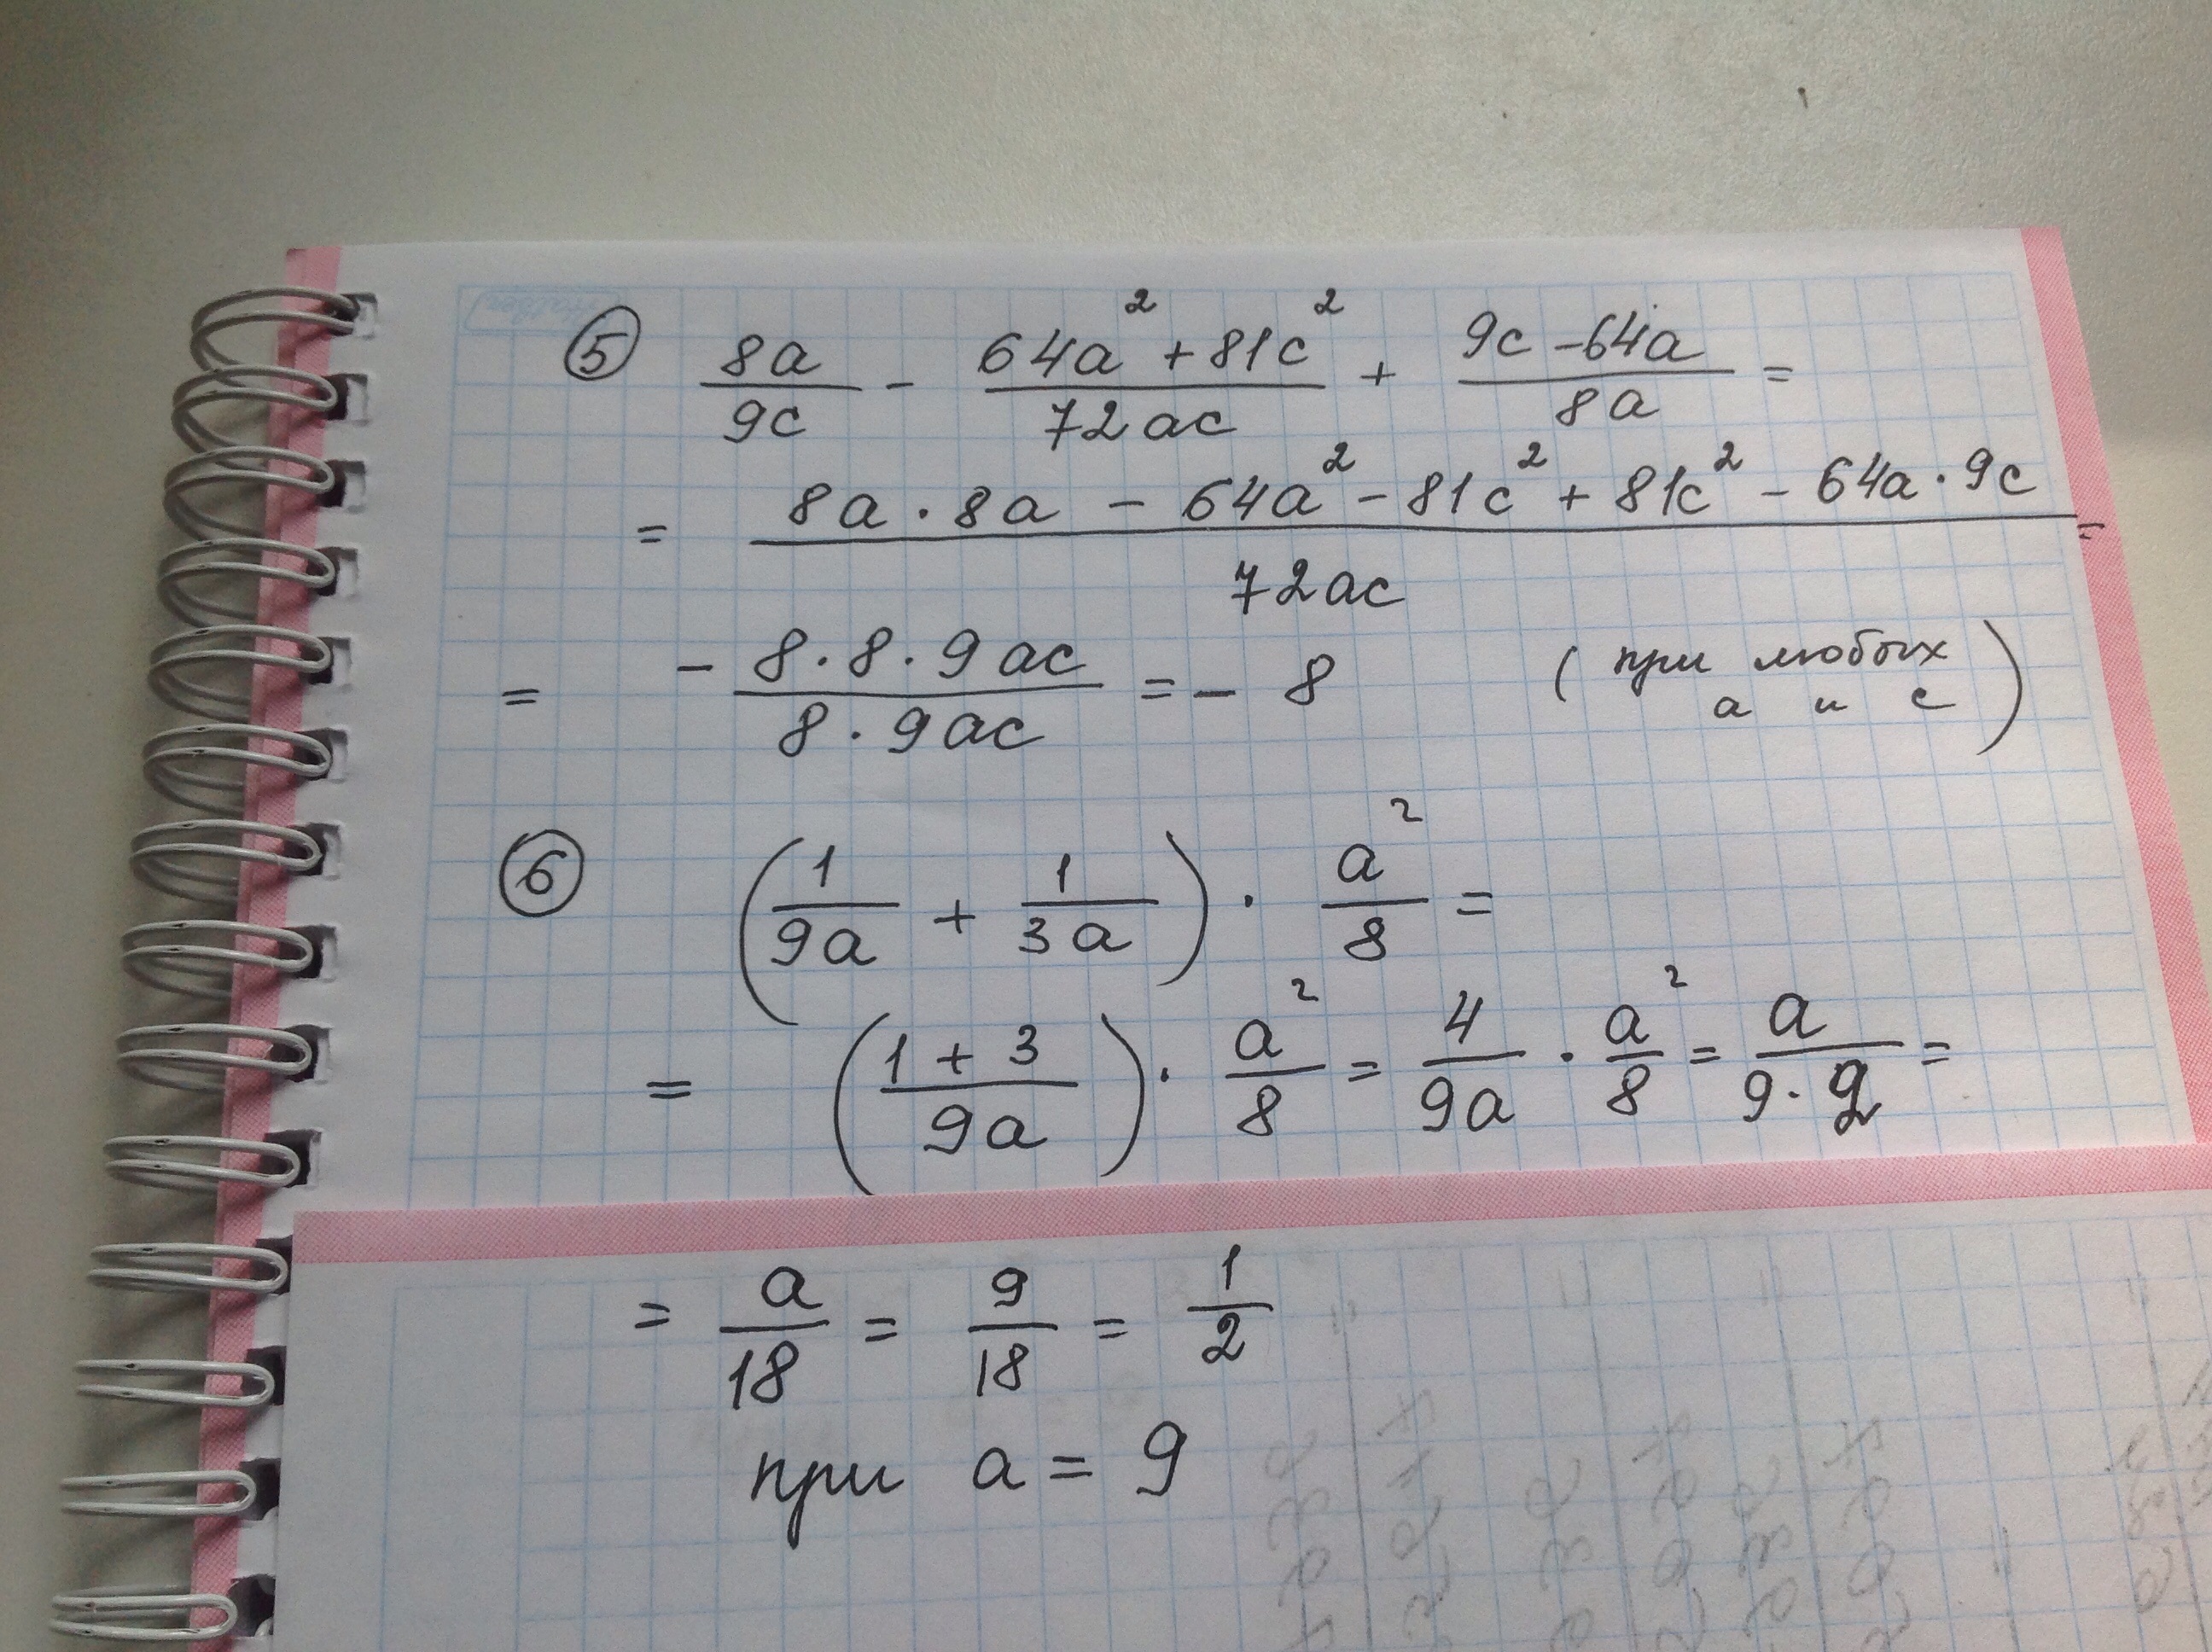 5 8a/9c - (64a² + 81c²)/72ac + (9c - 64a)/8a =
= (8a · 8a - 64a² - 81c² + 81c² - 64a · 9c)/72ac =
= - (8 · 8 · 9ac)/(8 · 9ac) = - 8 (при любых
а и с)
6 (1/9a + 1/3a) · a²/8 =
= ((1 + 3)/9a) · a²/8 = 4/9a · a²/8 = a/(9 · 2) =
= a/18 = 9/18 = 1/2
при a = 9